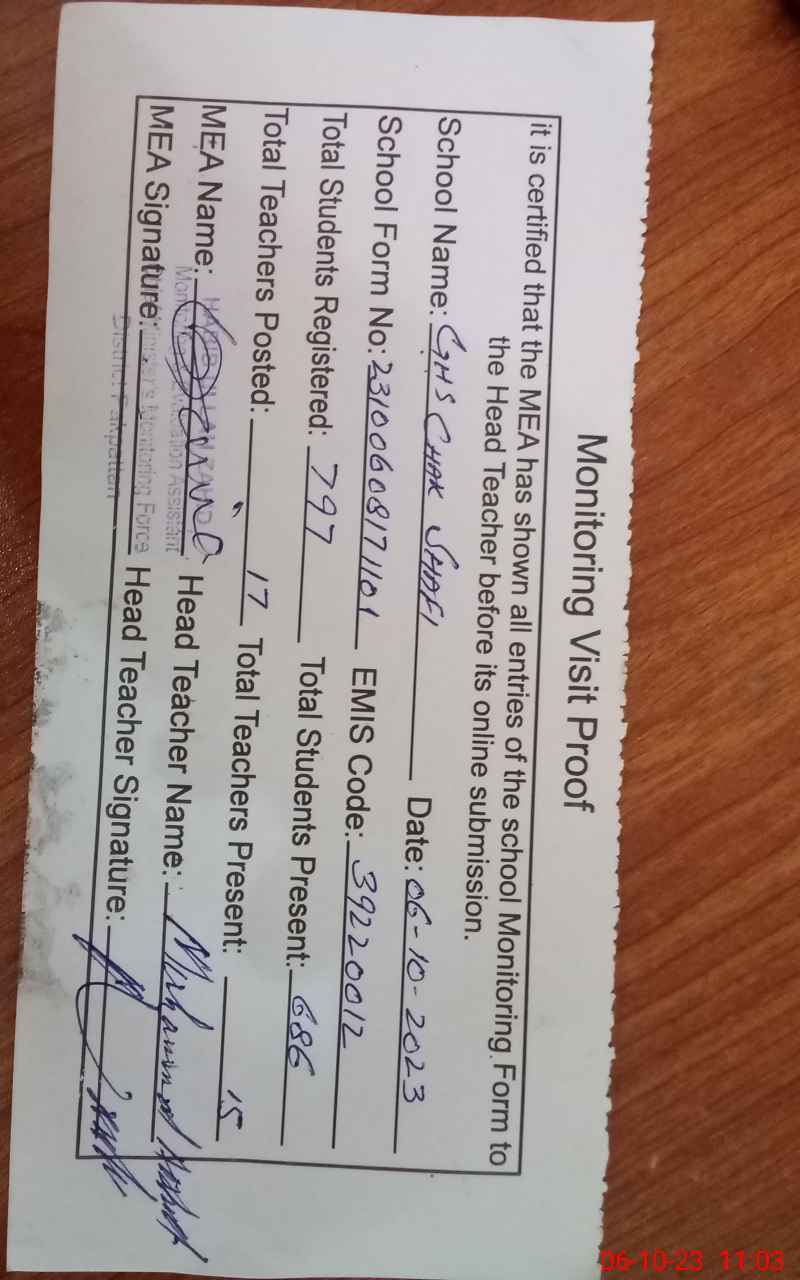 Monitoring Visit Proof
it is certified that the MEA has shown all entries of the school Monitoring Form to
the Head Teacher before its online submission.
School Name: GHS CHAK SHAFI Date: 06-10-2023
School Form No: 23100608171101 EMIS Code: 39220012
Total Students Registered: 797 Total Students Present: 686
Total Teachers Posted: 17 Total Teachers Present: 15
MEA Name: Head Teacher Name: Muhammad
Assistant
MEA Signature: Head Teacher Signature:
Monitoring Force
District Pakpattan
06-10-23 11:03